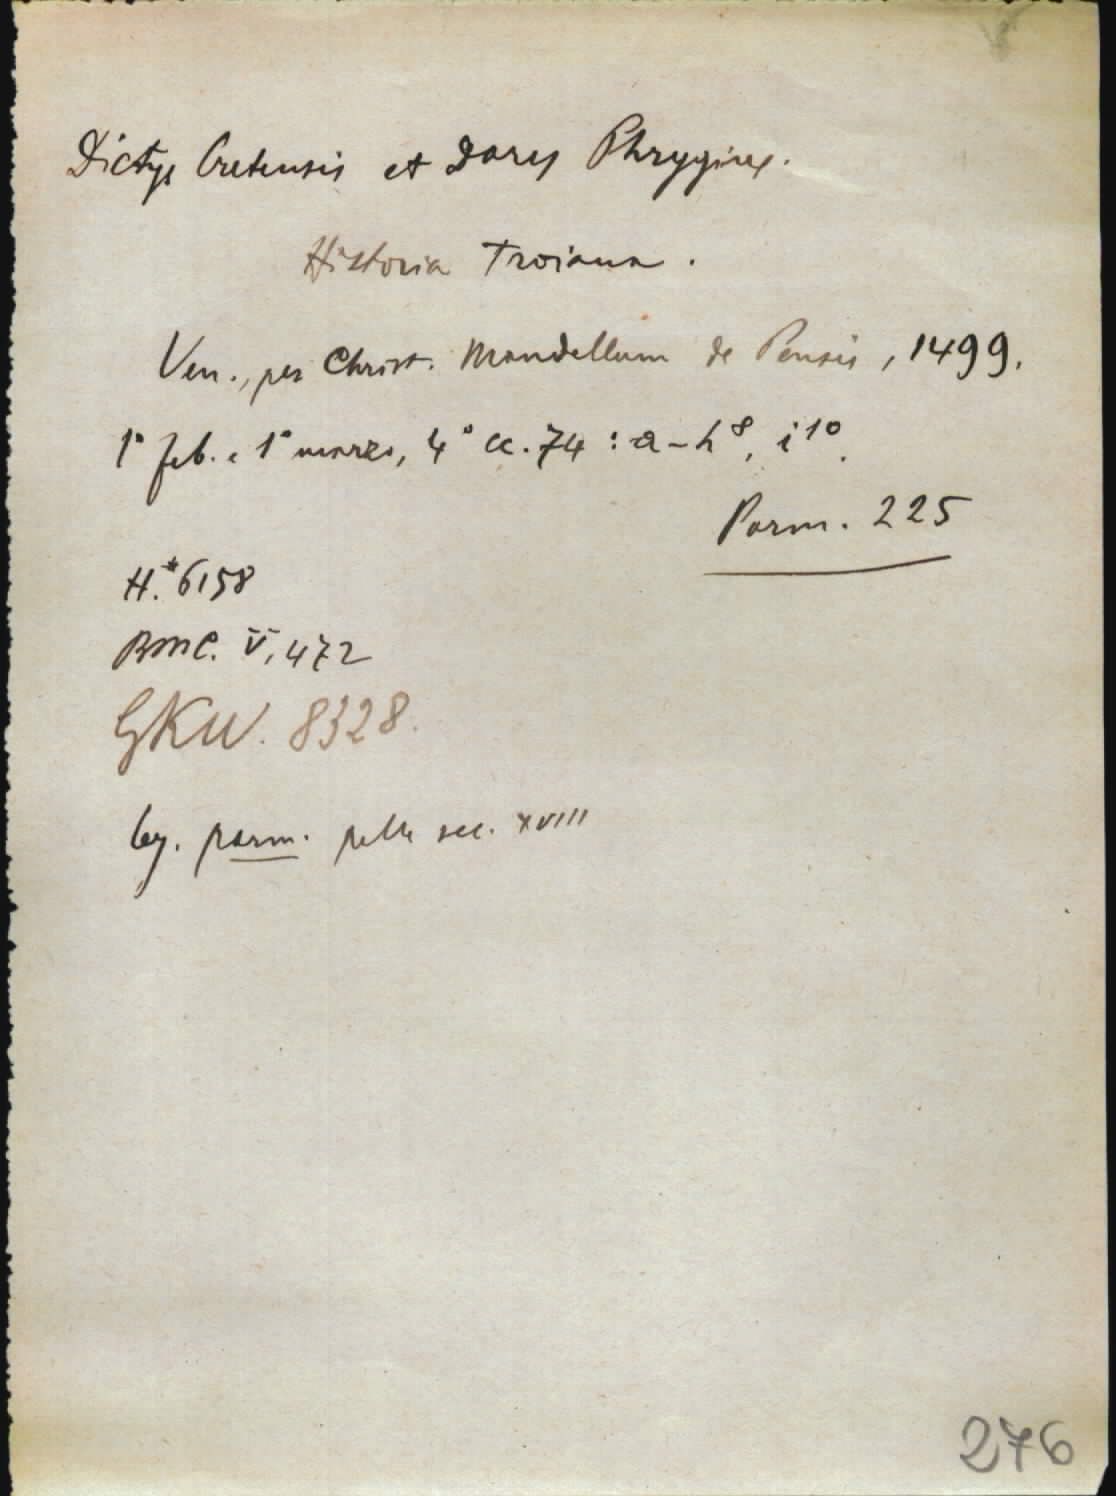 Dictys Cretensis et Dares Phrygius.
Historia Troiana.
Ven., per Christ. Mandellum de Pensis, 1499.
1° feb. e 1° marzo, 4° cc. 74 : a-h⁸, i¹⁰.
Parm. 225
H.*6158
BMC. V, 472
GKW. 8328.
Leg. parm. pelle sec. XVIII
276